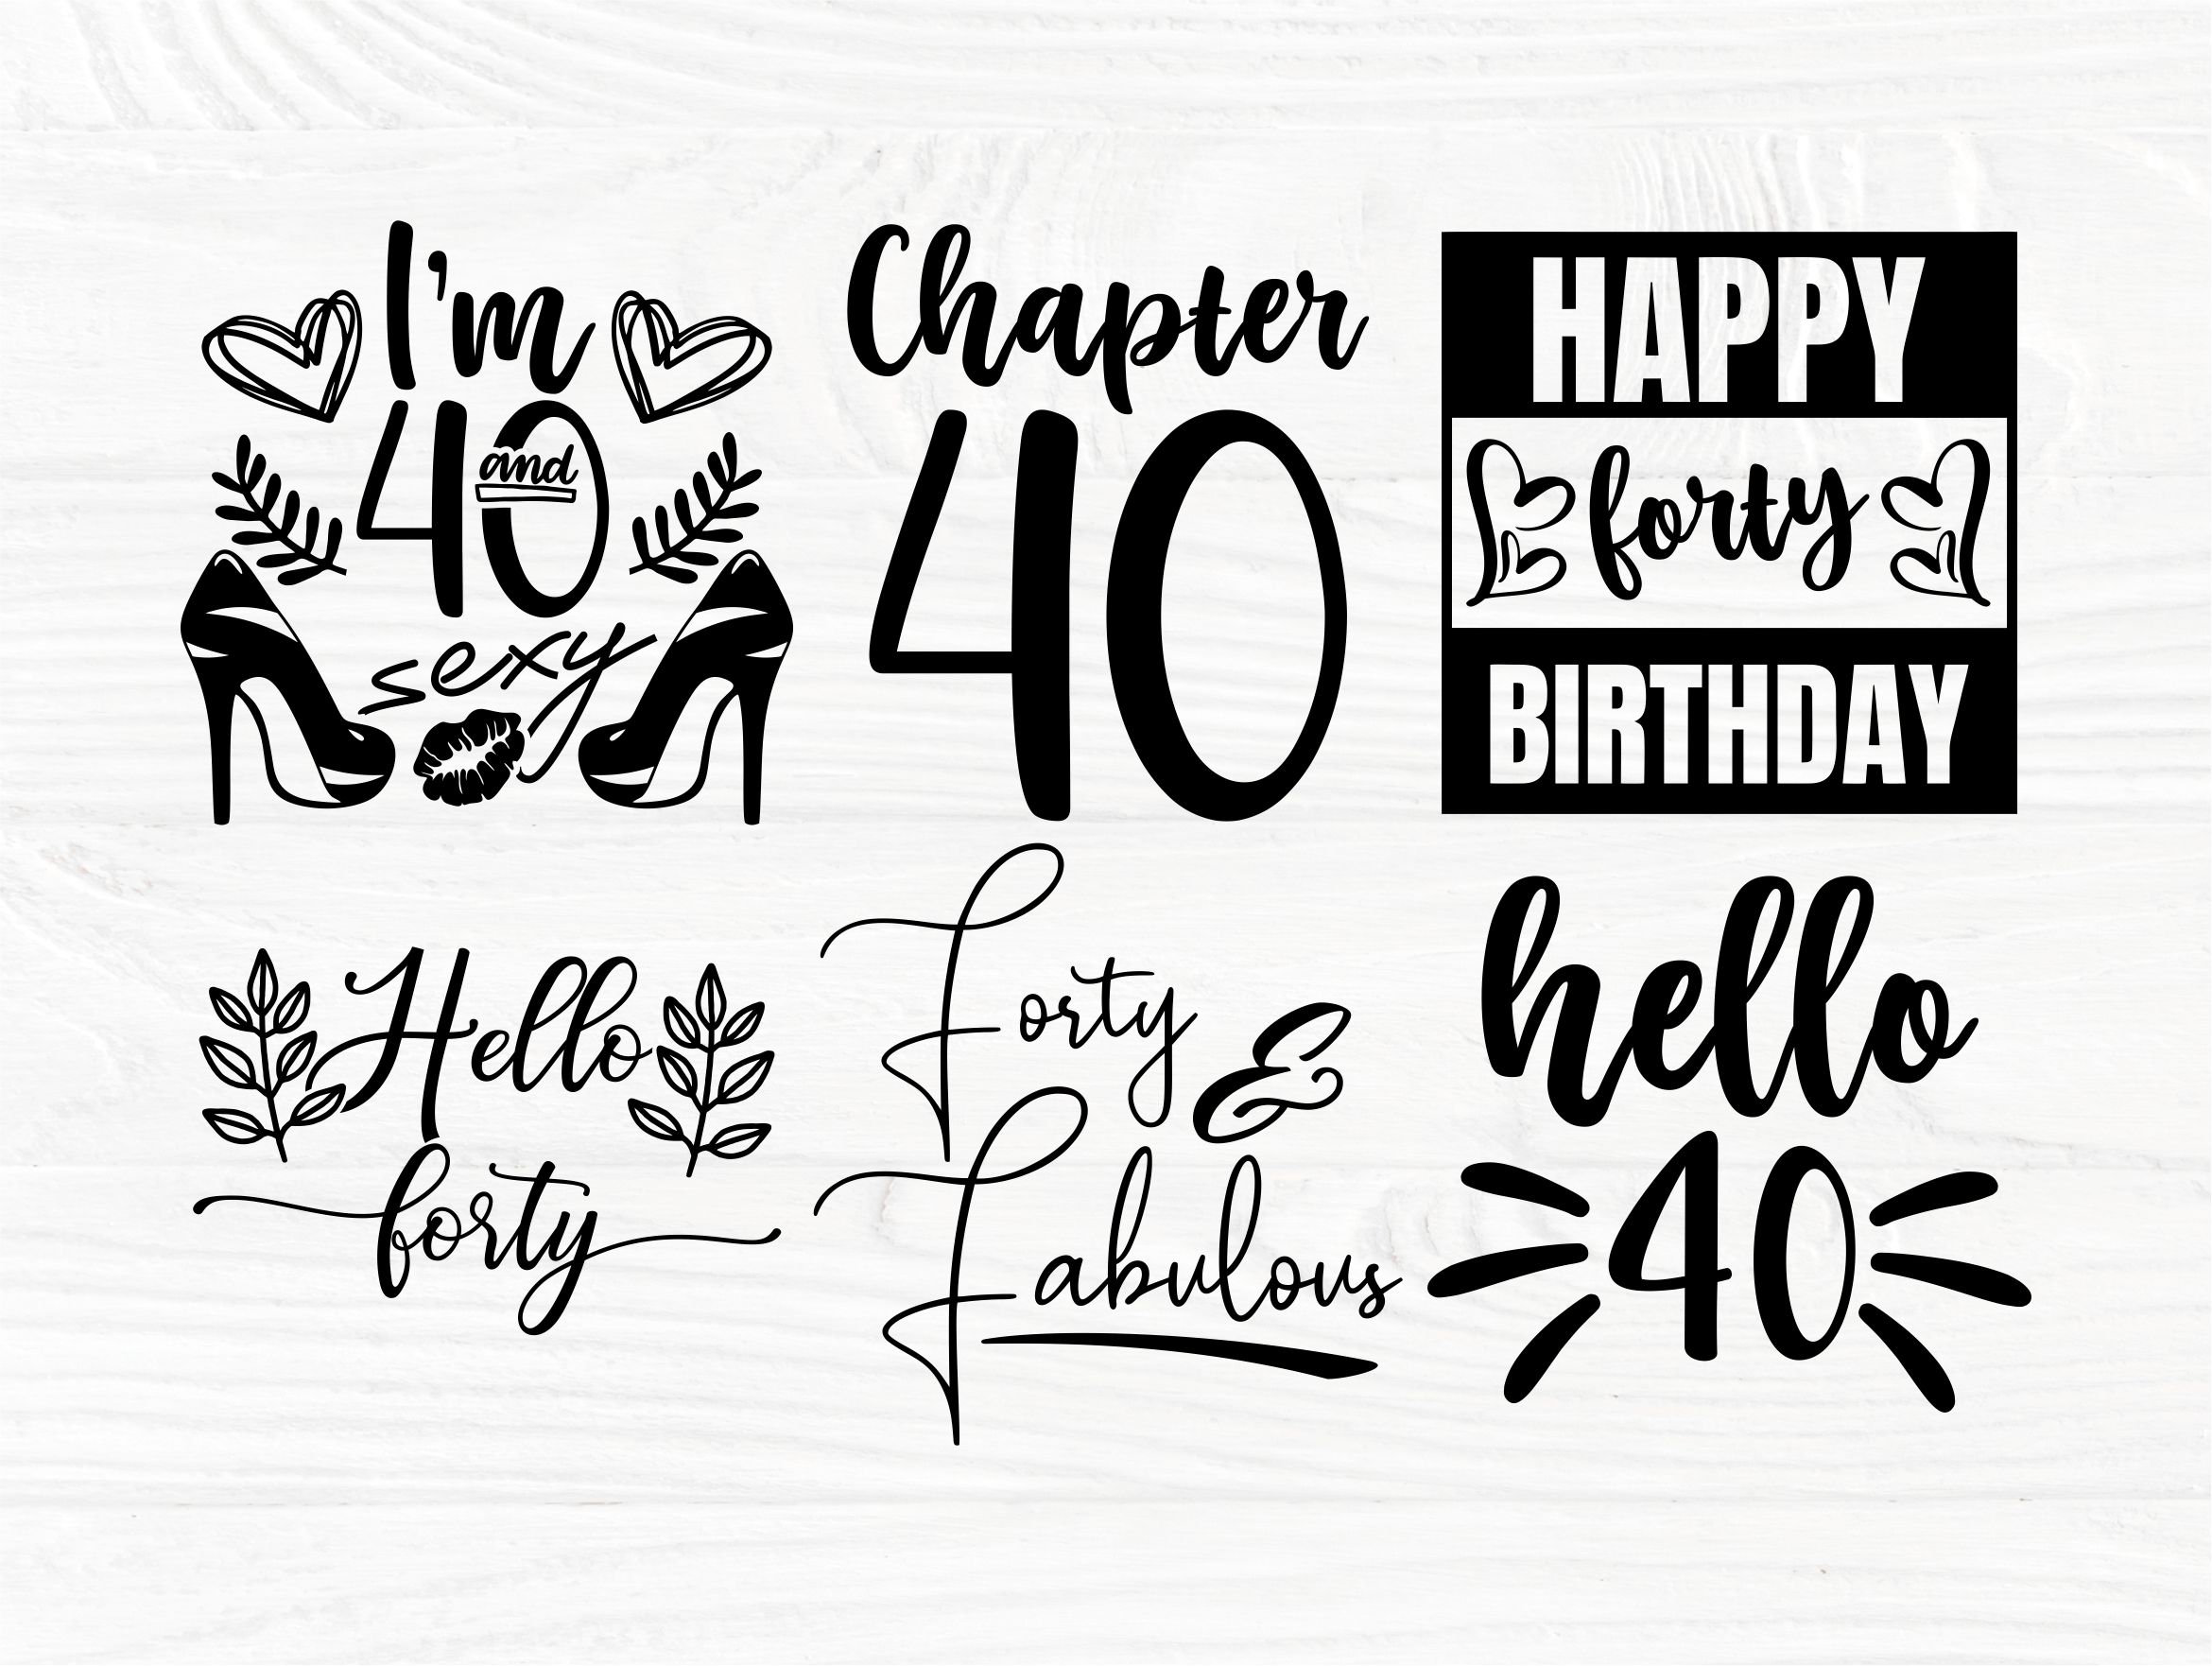 I'm
40
and
sexy
Chapter
40
HAPPY
forty
BIRTHDAY
Hello
forty
Forty &
Fabulous
hello
40